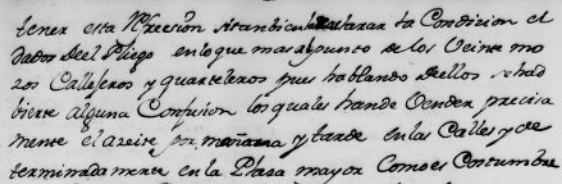 tener esta Npresion sitandicula aclarar la Condizion el
dados deel Pliego en loque mas alpunto de los Veinte mo
zos Callejeros y quarteleros pues hablando dellos se had
bierte alguna Confusion los quales hande Vender precisa
mente el azeite por mañana y tarde en las Calles y de
terminadamente en la Plaza mayor Como es Costumbre